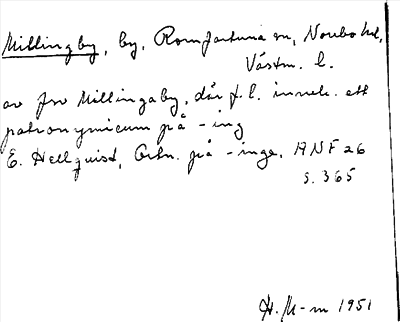 Millingby, by, Romfartuna sn, Norrbo hd,
Västm. l.
av fsv Millingaby, där f.l. inneh. ett
patronymicum på -ing
E. Hellquist, Ortn. på -inge, ANF 26
s. 365
H. M-m 1951